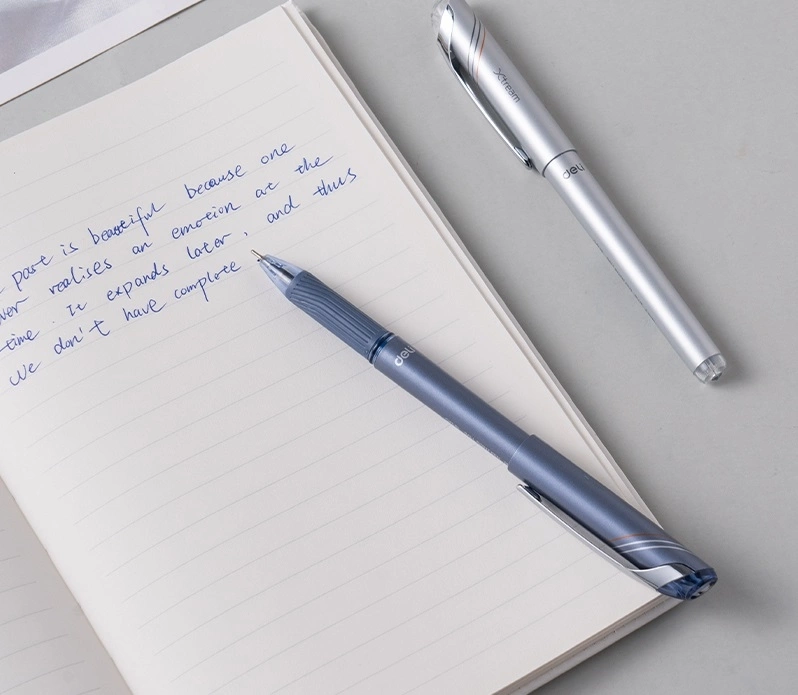 past is beautiful because one
realises an emotion at the
time. It expands later, and thus
We don't have complete
Xtream
deli
deli